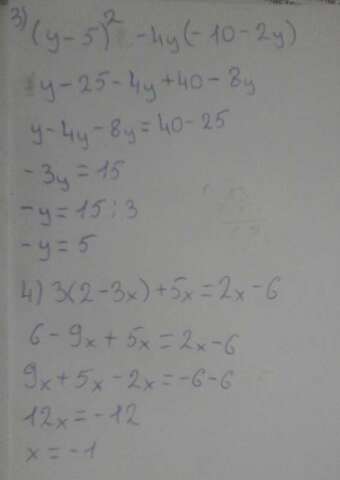 3) (y-5)² -4y(-10-2y)
y-25-4y+40-8y
y-4y-8y=40-25
-3y=15
-y=15:3
-y=5
4) 3(2-3x)+5x=2x-6
6-9x+5x=2x-6
9x+5x-2x=-6-6
12x=-12
x=-1